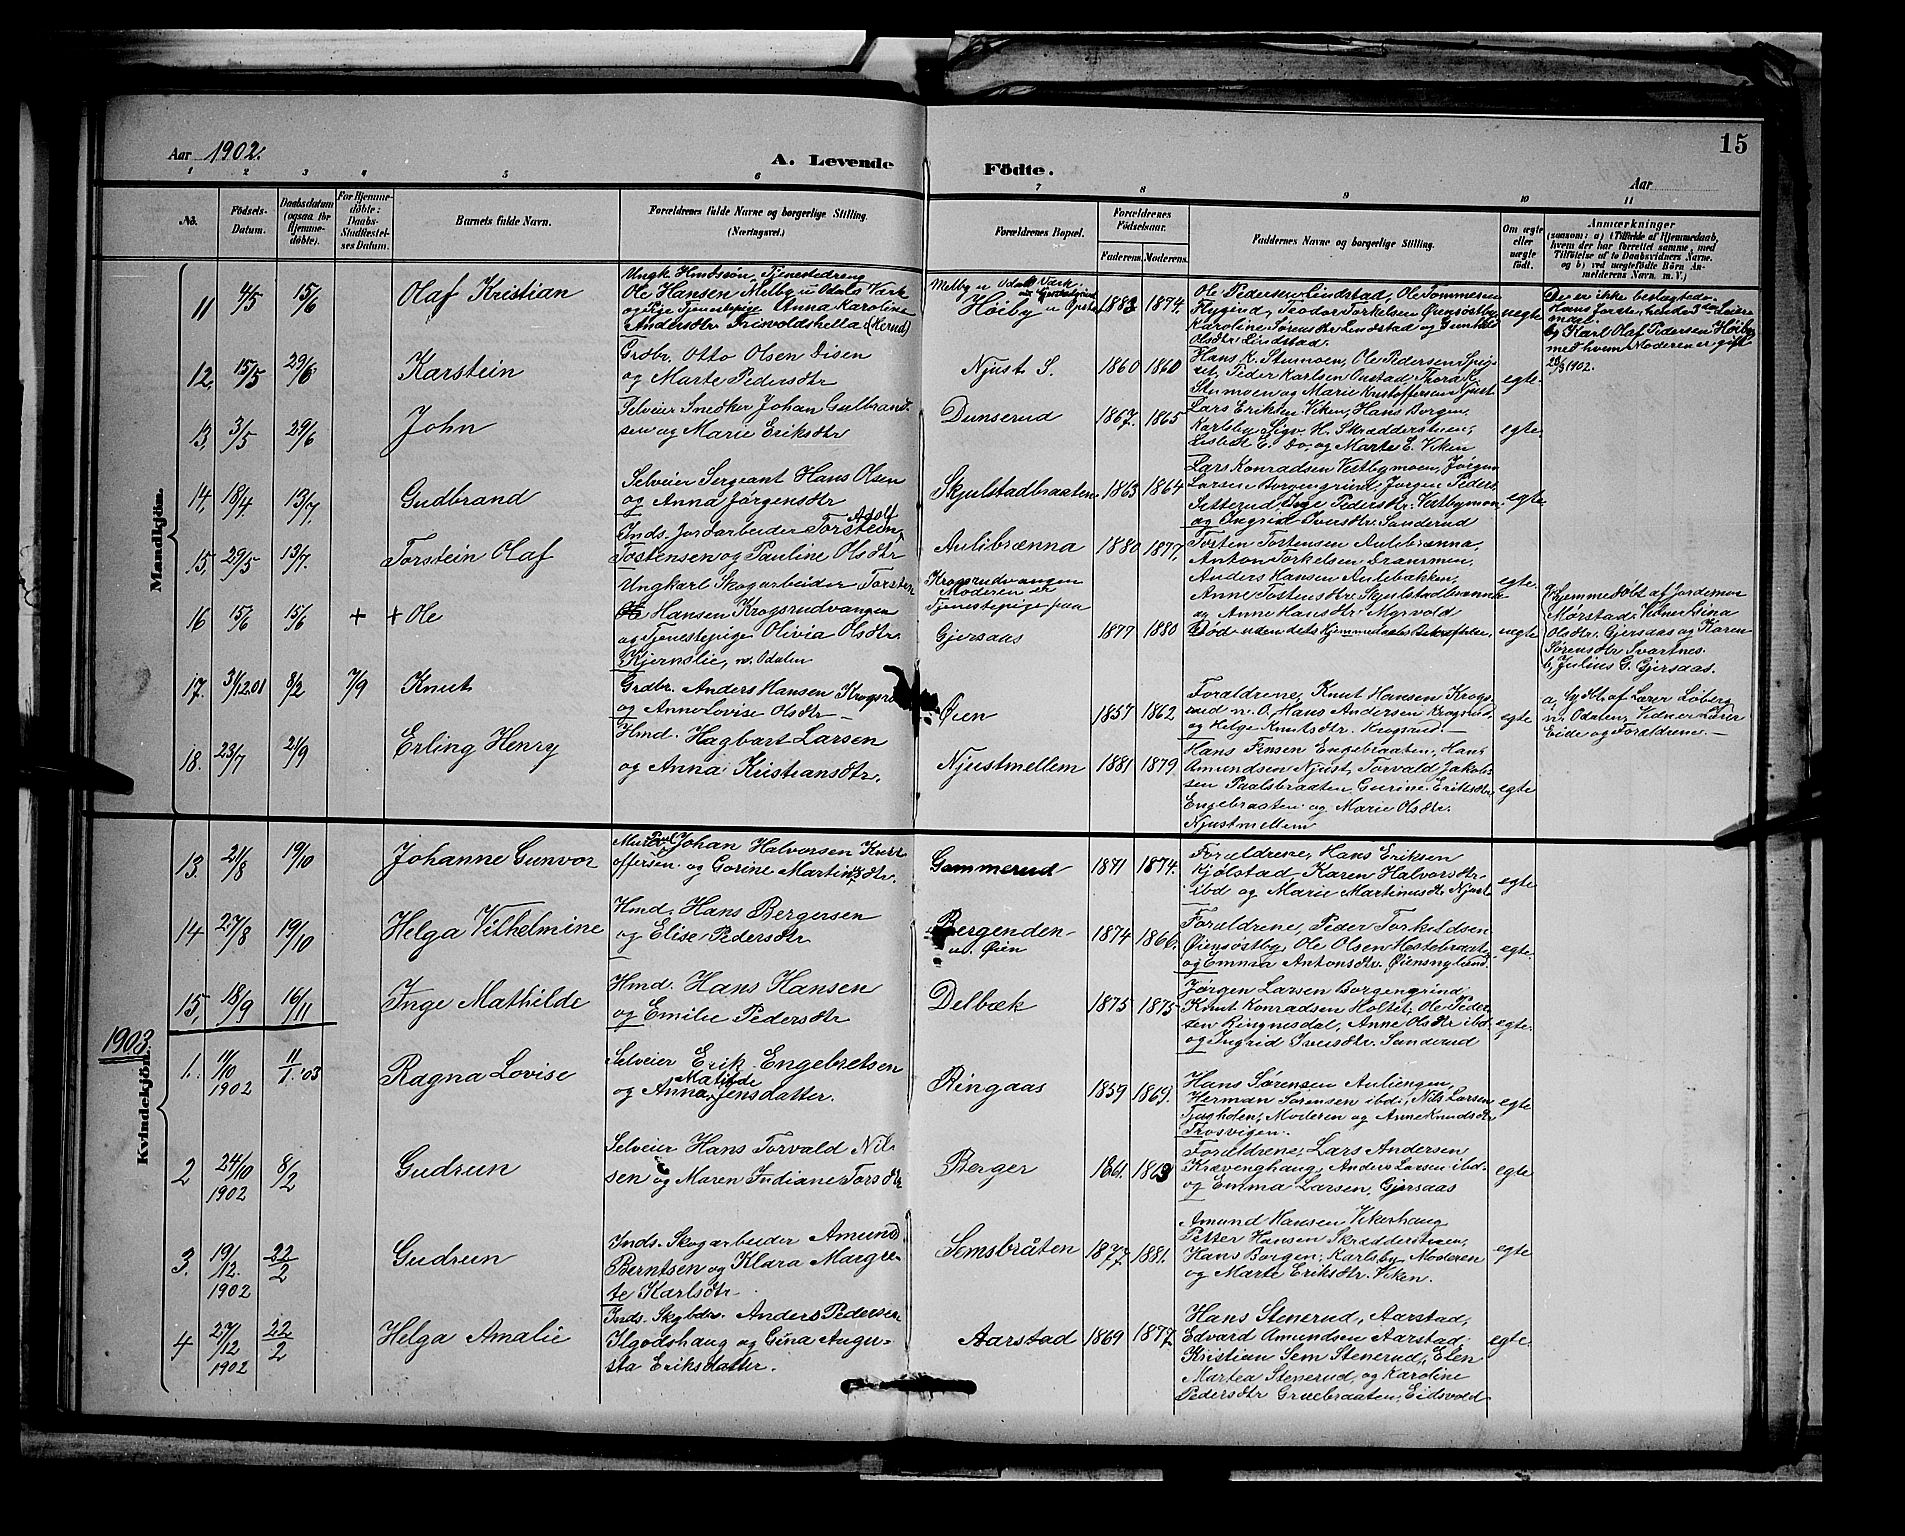 15
Aar 1902.
A. Levende
Födte.
Aar
1 2 3 4 5 6 7 8 9 10 11
No.
Födsels-
Datum.
Daabsdatum
(ogsaa for
Hjemme-
döbte).
For Hjemme-
döbte:
Daabs-
Stadfæstel-
ses Datum.
Barnets fulde Navn.
Forældrenes fulde Navne og borgerlige Stilling.
(Næringsvei.)
Forældrenes Bopæl.
Forældrenes
Födselsaar.
Faderens. Moderens.
Faddernes Navne og borgerlige Stilling.
Om ægte
eller
uægte
födt.
Anmærkninger
(saasom: a) i Tilfælde af Hjemmedaab,
hvem der har forrettet samme, med
Tilföielse af to Daabsvidners Navne.
og b) ved uægtefödte Börn An-
melderens Navn m. V.)
Mandkjön.
11 4/5 15/6 Olaf Kristian
Ungk. Hmdssøn, Tjenestedreng
Ole Hansen Melby u Odals Værk
og Pige Tjenestepige Anna Karoline
Andersdtr
Melby u Odals Værk
Høiby u
1883 1874.
Ole Pedersen Lindstad, Ole Tommesen
Flygind, Teodor Torkelsen Øiensøstby
Karoline Sørensdtr Lindstad og Gunhild
Olsdtr. Lindstad.
uegte
De er ikke beslægtede.
Hans første, hendes
maal.
b, Karl Olaf Pedersen Høiby
med hvem Moderen er gift
1902.
12. 15/5 29/6 Karstein
Grdbr. Otto Olsen Disen
og Marte Pedersdtr
Njust S.
1860 1860
Hans K. Stumoen, Ole Pedersen
Peder Karlsen Onstad, Thora K.
Stumoen og Marie Kristoffersen Njust
egte.
13, 3/5 29/6 John
Selveier Snedker Johan Gulbrand-
sen og Marie Eriksdtr
Dunserud
1867. 1865
Lars Eriksen Viken, Hans Borgen,
Karlsby, Sigv. H. Skrædderstuen,
Lisbeth E. Do, og Marte E. Viken
egte.
14, 18/4, 13/7, Gudbrand
Selveier Sergeant Hans Olsen
og Anna Jørgensdtr
Skjulstadbraaten
1865 1864
Lars Konradsen Vestbymoen, Jørgen
Larsen Borgengrind, Jørgen Peders.
Sætterud, Inge Pedersdtr. Vestbymoen
og Ingrid Iversdtr. Sanderud
egte.
15, 29/5 13/7. Torstein Olaf
Inds. Jordarbeider Torstein Adolf
Tostensen og Pauline Olsdtr
Aulibrænna
1880 1877,
Tosten Tostensen Aulibrænna,
Anton Torkelsen
Anders Hansen Aulebakken,
Anne Tostensdtr. Skjulstadbrænna
og Anne Hansdtr. Myrvold
egte.
16 15/6 15/6 + + Ole
Ungkarl Skogarbeider Torsten
Hansen Krogsrudvangen
og Tjenestepige Olivia Olsdtr.
Kjernslie, n. Odalen
Krogsrudvangen
Moderen er
Tjenestepige paa
Gjersaas
1877 1880
Død uden dets Hjemmedaabs Bekræftelse,
uegte
Hjemmedøbt af Jordemor
Mørstad. Vidner Lina
Olsdtr. Gjersaas og Karen
Sørensdtr Svartnes.
b, Julius G. Gjersaas.
17. 31/12.01 8/2 7/9 Knut
Grdbr. Anders Hansen Krogsrud
og Anne Lovise Olsdtr
Øien
1857 1862
Forældrene, Knut Hansen Krogs-
rud n. O, Hans Andersen Krogsrud,
og Helge Knutsdtr. Krogsrud.
egte
a, Hjdbt. af Lærer Løberg
n. Odalen, Vidner Lærer
Eide og Forældrene.
18. 23/7 21/9 Erling Henry
Hmd. Hagbart Larsen
og Anna Kristiansdtr.
Njustmellem
1881 1879
Hans Finsen Engebraaten, Hans
Amundsen Njust, Torvald Jakob-
sen Paalsbraaten, Gurine Eriksdtr
Engebraaten og Marie Olsdtr.
Njustmellem
egte
13. 21/8 19/10 Johanne Gunvor
Murer Poul Johan Halvorsen
offersen og Gorine Martinusdtr.
Gammerud
1871 1874.
Forældrene, Hans Eriksen
Kjølstad, Karen Halvorsdtr
ibd og Marie Martinusdtr Njust
egte
14 27/8 19/10 Helga Vilhelmine
Hmd. Hans Bergersen
og Elise Pedersdtr
Bergenden
u. Øien
1874 1866.
Forældrene, Peder Torkildsen
Øiensøstby, Ole Olsen Hestebraaten
og Emma Antonsdtr. Øiensnyland
egte.
15, 18/9 16/11 Inge Mathilde
Hmd. Hans Hansen
og Emilie Pedersdtr
Delbæk
1875 1875
Jørgen Larsen Borgengrind,
Knut Konradsen Holtet, Ole Peder-
sen Ringnesdal, Anne Olsdtr ibd.
og Ingrid Iversdtr. Sanderud
egte.
1903
Kvindekjön.
1. 11/10 1902 11/1.'03 Ragna Lovise
Selveier Erik Engebretsen
og Anna Matilde Jensdatter.
Ringaas
1859 1869.
Hans Sørensen Auliengen,
Herman Sørensen ibd., Nils Larsen
Tjugholen, Moderen og Anne Knudsdtr
Trosvigen.
egte
2 24/10 1902 8/2 Gudrun
Selveier Hans Torvald Nil-
sen og Maren Indiane Torsdtr
Berger
1861. 1863
Forældrene, Lars Andersen
Krævenghaug, Anders Larsen ibd.
og Emma Larsen, Gjersaas
egte
3. 19/12. 1902 22/2 Gudrun
Inds. Skogarbeider Amund
Berntsen og Klara Margre-
te Karlsdtr.
Semsbråten
1877. 1881.
Amund Hansen Vikershaug
Petter Hansen Skrædderstuen,
Hans Borgen, Karlsby, Moderen
og Marte Eriksdtr. Viken.
egte
4 27/12 1902 22/2 Helga Amalie
Inds. Skybds. Anders Pedersen
Ilgodshaug og Gina Augu-
sta Eriksdatter.
Aarstad
1869 1877.
Hans Stenerud, Aarstad,
Edvard Amundsen Aarstad,
Kristian Sem Stenerud, Elen
Martea Stenerud, og Karoline
Pedersdtr Gruebraaten, Eidsvold
egte.